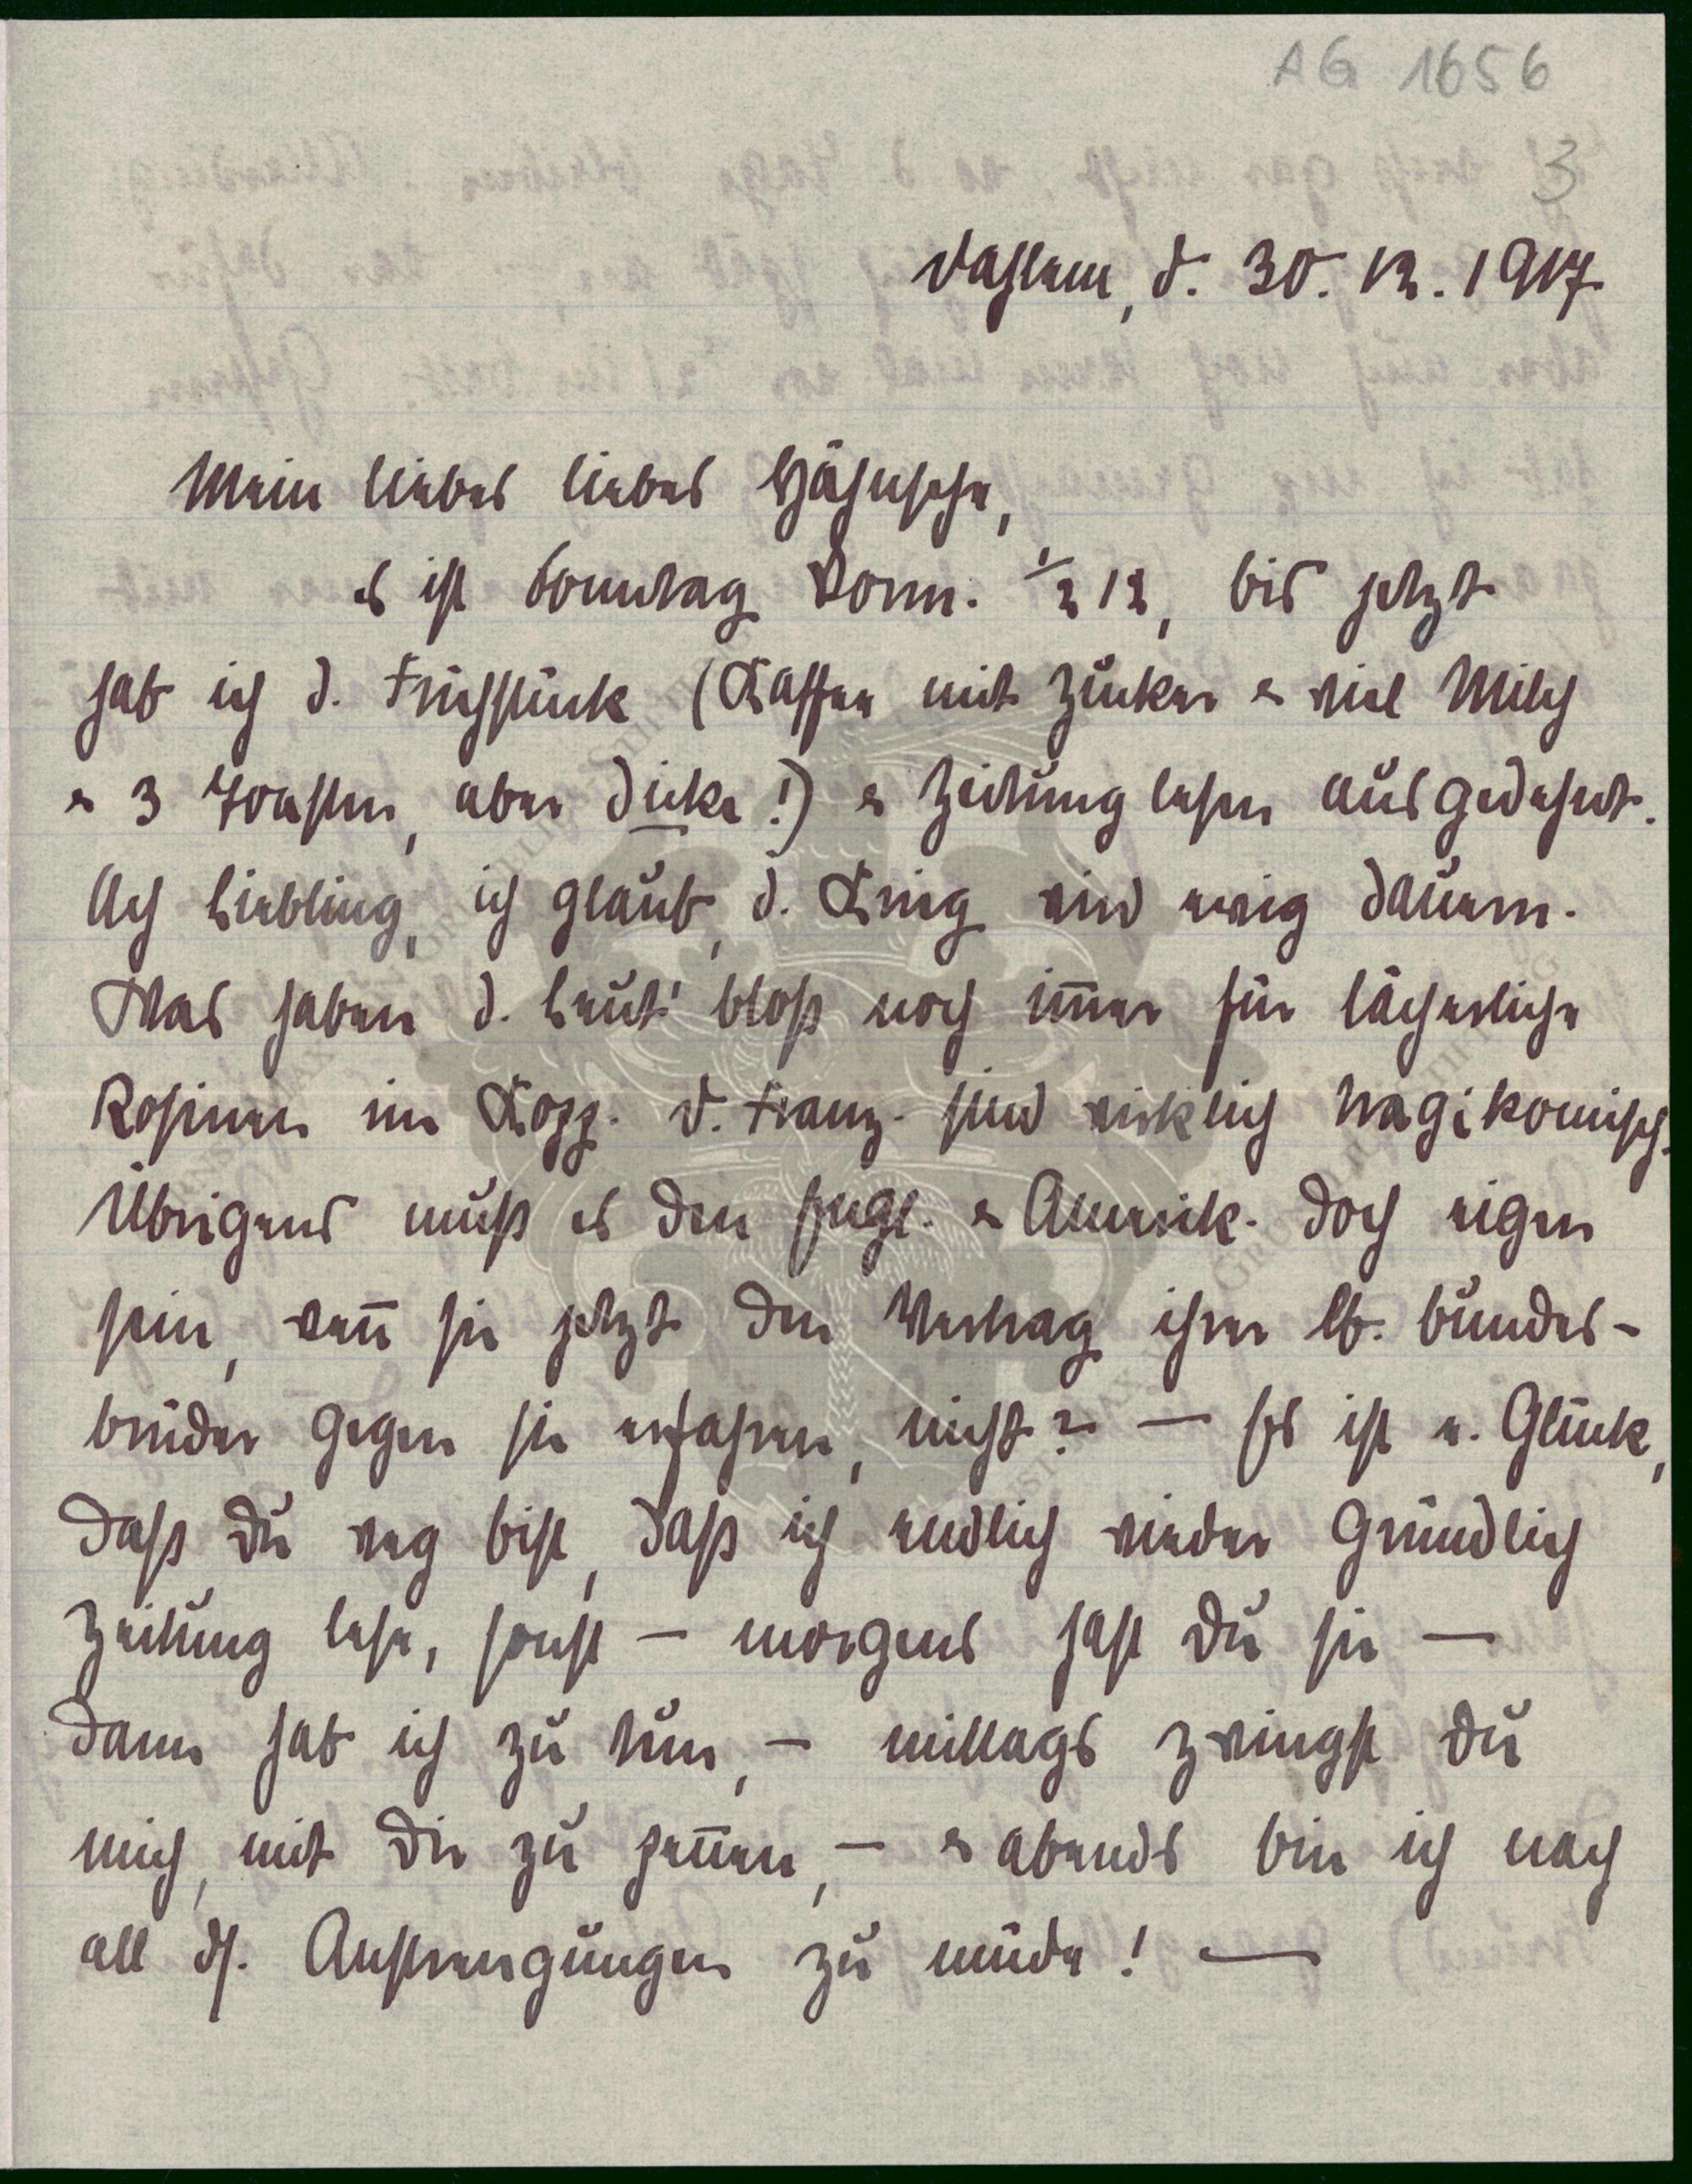 AG 1656
3
Dahlem, d. 30. 12. 1917
Mein liebes liebes Hähnsche,
es ist Sonntag Vorm. 1/2 12, bis jetzt
hab ich d. Frühstück (Kaffee mit Zucker & viel Milch
& 3 Toasten, aber dicke!) & Zeitunglesen ausgedehnt.
Ach Liebling, ich glaub, d. Krieg wird ewig dauern.
Was haben d. Leut' bloß noch im̅er für lächerliche
Rosinen im Kopf. D. Franz. sind wirklich tragikomisch.
Übrigens muß es den Engl. & Amerik. doch eigen
sein, wen̅ sie jetzt den Vertrag ihrer lb. Bundes-
brüder gegen sie erfahren, nicht? — Es ist e. Glück,
daß Du weg bist, daß ich endlich wieder gründlich
Zeitung lese, sonst — morgens hast Du sie —
dann hab ich zu tun, — mittags zwingst Du
mich, mit Dir zu pen̅en, — & abends bin ich nach
all ds. Anstrengungen zu müde! —